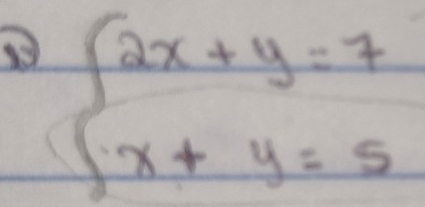 2x + y = 7
x + y = 5